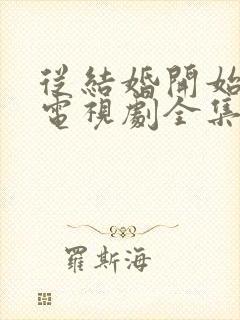 從結婚開始
電視劇全集
羅斯海